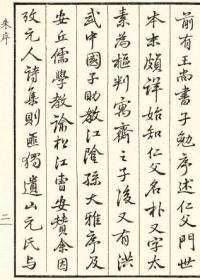 前有王尚書子勉序述仁父門世
本末頗詳始知仁父名朴又字太
素為樞判寓齋之子後又有洪
武中國子助教江陰孫大雅序及
安丘儒學教諭松江曹安贊余因
攷元人詩集則匪獨遺山元氏與
朱序
二